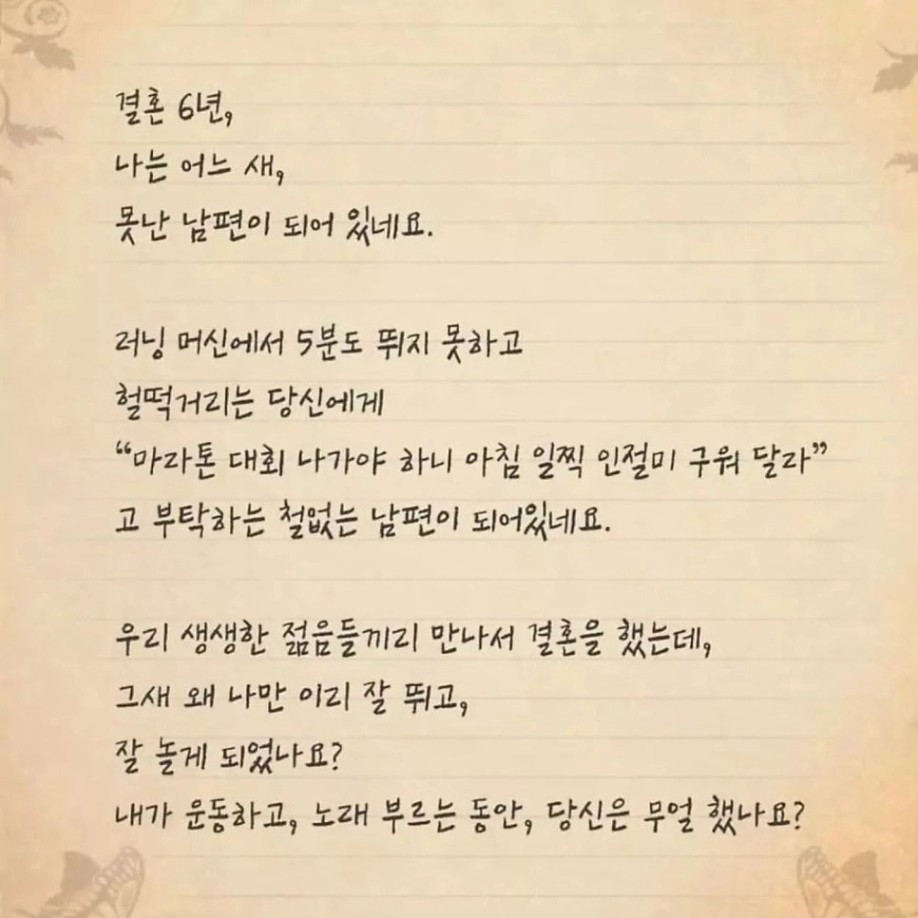 결혼 6년,
나는 어느 새,
못난 남편이 되어 있네요.
러닝 머신에서 5분도 뛰지 못하고
헐떡거리는 당신에게
“마라톤 대회 나가야 하니 아침 일찍 인절미 구워 달라”
고 부탁하는 철없는 남편이 되어있네요.
우리 생생한 젊음들끼리 만나서 결혼을 했는데,
그새 왜 나만 이리 잘 뛰고,
잘 놀게 되었나요?
내가 운동하고, 노래 부르는 동안, 당신은 무얼 했나요?